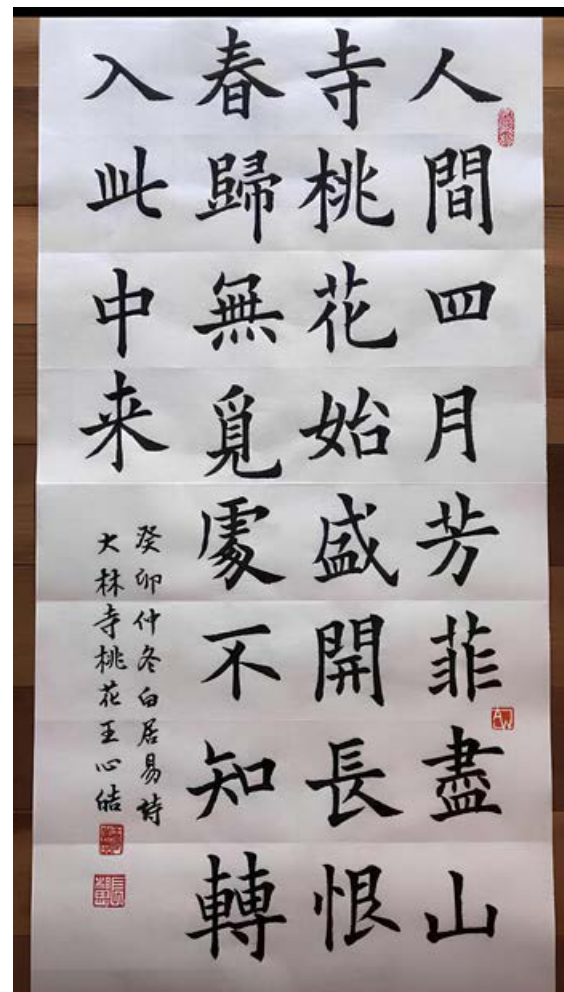 人間四月芳菲盡山
寺桃花始盛開長恨
春歸無覓處不知轉
入此中来
癸卯仲冬白居易詩
大林寺桃花王心皓
AW